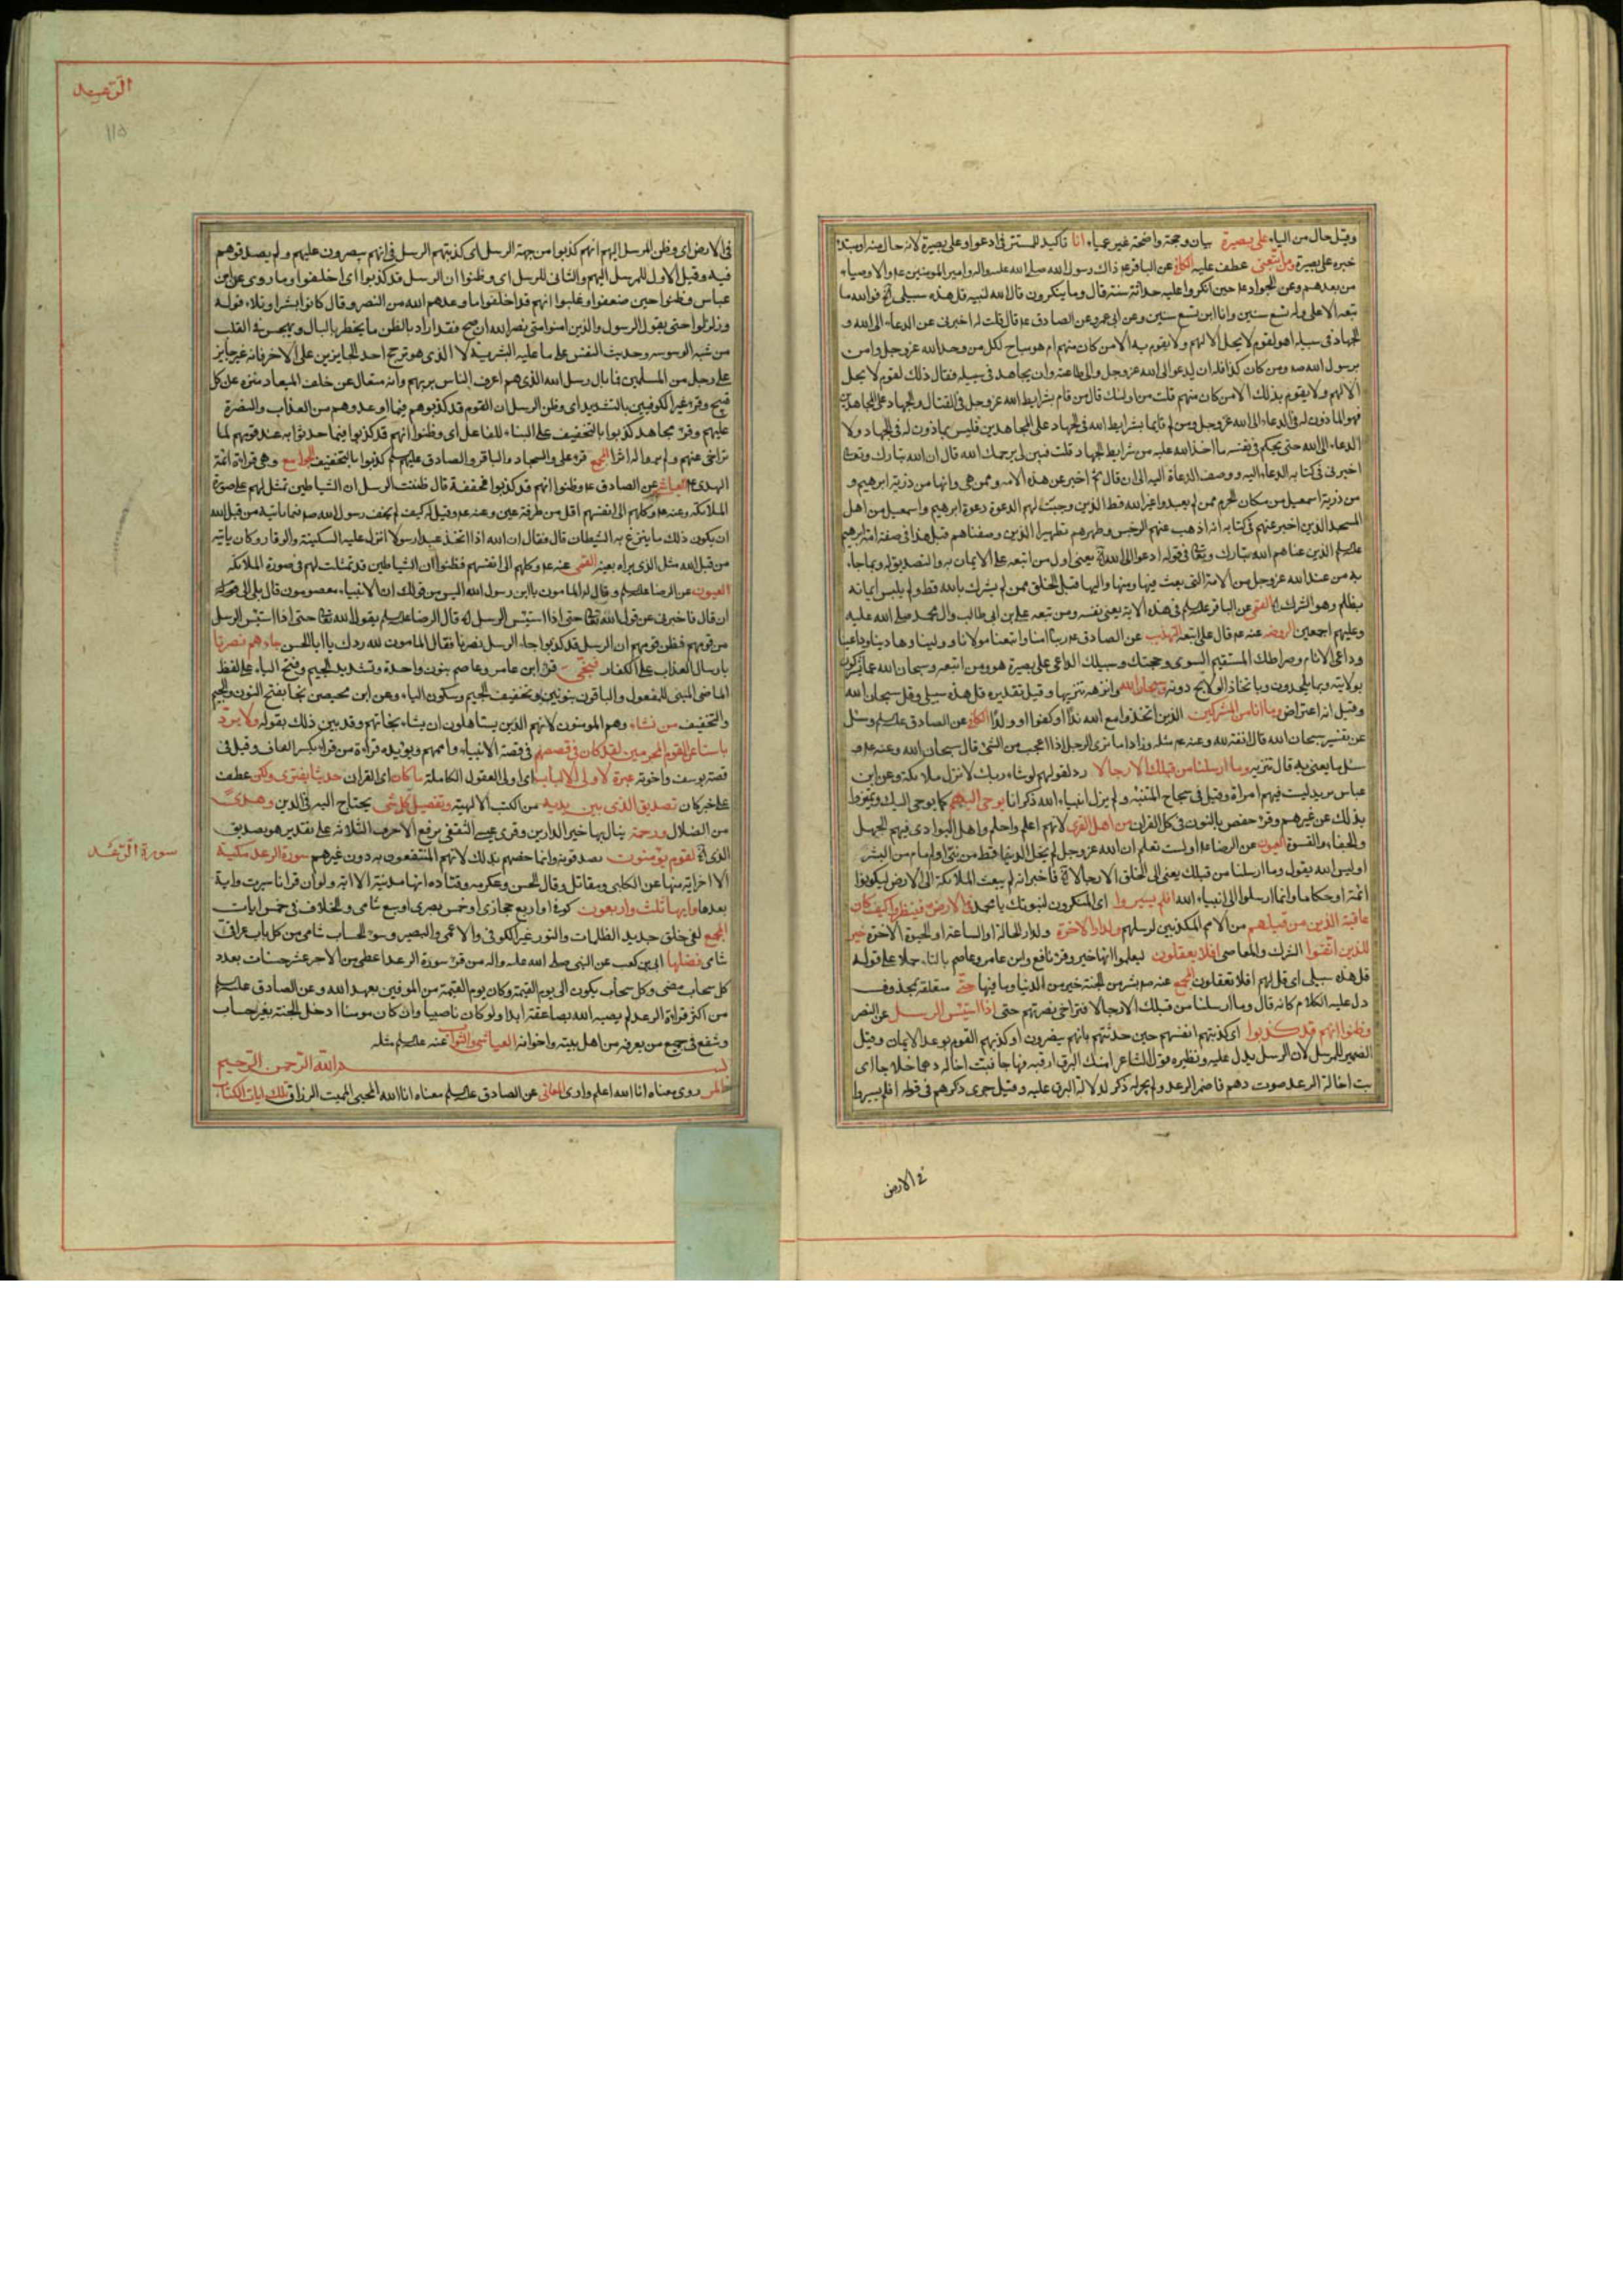 وقيل حال من الياء على بصيرة بيان وحجة واضحة غير عمياء انا تاكيد للمستتر فى ادعوا وعلى بصيرة لانه حال منه او مبتدا
خبره على بصيرة ومن اتبعنى عطف عليه الكافى عن الباقر عم ذاك رسول الله صلى الله عليه واله وامير المومنين عم والاوصياء
من بعدهم وعن الجواد عم حين انكروا عليه حداثة سنه قال وما ينكرون قال الله لنبيه قل هذه سبيلى فوالله ما
تبعه الا على وله تسع سنين وانا ابن تسع سنين وعن ابى عمرو عن الصادق عم قال قلت له اخبرنى عن الدعاء الى الله و
الجهاد فى سبيله اهو لقوم لا يحل الا لهم ولا يقوم به الا من كان منهم ام هو مباح لكل من وحد الله عز وجل وامن
برسول الله صم ومن كان كذا فله ان يدعو الى الله عز وجل والى طاعته وان يجاهد فى سبيله فقال ذلك لقوم لا يحل
الا لهم ولا يقوم بذلك الا من كان منهم قلت من اولئك قال من قام بشرايط الله عز وجل فى القتال والجهاد على المجاهدين
فهو الماذون له فى الدعاء الى الله عز وجل ومن لم يكن قايما بشرايط الله فى الجهاد على المجاهدين فليس بماذون له فى الجهاد ولا
الدعاء الى الله حتى يحكم فى نفسه ما اخذ الله عليه من شرايط الجهاد قلت فبين لى يرحمك الله قال ان الله تبارك وتعا
اخبر فى كتابه الدعاء اليه ووصف الدعاة اليه الى ان قال ثم اخبر عن هذه الامة وممن هى وانها من ذرية ابرهيم و
من ذرية اسمعيل من سكان الحرم ممن لم يعبدوا غير الله قط الذين وجبت لهم الدعوة دعوة ابرهيم واسمعيل من اهل
المسجد الذين اخبر عنهم فى كتابه انه اذهب عنهم الرجس وطهرهم تطهيرا الذين وصفناهم قبل هذا فى صفة امة ابرهيم
الذين عناهم الله تبارك وتعا فى قوله ادعوا الى الله يعنى اول من اتبعه على الايمان به والتصديق له وبما جاء
به من عند الله عز وجل من الامة التى بعث فيها ومنها واليها قبل الخلق ممن لم يشرك بالله قط ولم يلبس ايمانه
بظلم وهو الشرك القمى عن الباقر فى هذه الاية يعنى نفسه ومن تبعه على بن ابى طالب وال محمد صلى الله عليه
وعليهم اجمعين الروضة عنه عم قال على اتبعه التهذيب عن الصادق عم ربنا امنا واتبعنا مولانا وولينا وهادينا وداعينا
وداعى الانام وصراطك المستقيم السوى وحجتك وسبيلك الداعى على بصيرة هو ومن اتبعه وسبحان الله عما يشركون
بولايته وبما يلحدون وباتخاذ الولايج دونه وسبحان الله وانزهه تنزيها وقيل تقديره قل هذه سبيلى وقل سبحان الله
وقيل انه اعتراض وما انا من المشركين الذين اتخذوا مع الله ندا او كفوا او ولدا الكافى عن الصادق وسئل
عن تفسير سبحان الله قال انفة لله وعنه عم مثله وزاد اما ترى الرجل اذا اعجب من الشئ قال سبحان الله وعنه عم و
سئل ما يعنى به قال تنزيه وما ارسلنا من قبلك الا رجالا رد لقولهم لو شاء ربك لانزل ملائكة وعن ابن
عباس يريد ليست فيهم امراة وقيل فى سجاح المتنبئة ولم يزل انبياء الله ذكرانا يوحى اليهم كما يوحى اليك
بذلك عن غيرهم وقرء حفص بالنون فى كل القران من اهل القرى لانهم اعلم واحلم واهل البوادى فيهم الجهل
والجفاء والقسوة العيون عن الرضا عم اولست تعلم ان الله عز وجل لم يخل الدنيا قط من نبى او امام من البشر
اوليس الله يقول وما ارسلنا من قبلك يعنى الى الخلق الا رجالا فاخبر انه لم يبعث الملائكة الى الارض ليكونوا
ائمة او حكاما وانما ارسلوا الى انبياء الله افلم يسيروا اى المنكرون لنبوتك يا محمد فى الارض فينظروا كيف كان
عاقبة الذين من قبلهم من الامم المكذبين لرسلهم ولدار الاخرة ولدار الحالة او الساعة او الحيوة الاخرة خير
للذين اتقوا الشرك والمعاصى افلا يعقلون ليعلموا انها خير وقرء نافع وابن عامر وعاصم بالتاء حملا على قوله
قل هذه سبيلى اى قل لهم افلا تعقلون المجمع عنه صم شبر من الجنة خير من الدنيا وما فيها حتى متعلقة بمحذوف
دل عليه الكلام كانه قال وما ارسلنا من قبلك الا رجالا فتراخى نصرتهم حتى اذا استيئس الرسل عن النصر
وظنوا انهم قد كذبوا اى كذبتهم انفسهم حين حدثتهم بانهم ينصرون او كذبهم القوم بوعد الايمان وقيل
الضمير للمرسل لان الرسل يدل عليه ونظيره قول الشاعر امنك البرق ارقبه فهاجا فبت اخاله دهما خلاجا اى
بت اخالة الرعد صوت دهم فاضمر الرعد ولم يجر له ذكر لدلالة البرق عليه وقيل جرى ذكرهم فى قوله افلم يسيروا
فى الارض
الرعد
١١٥
فى الارض اى وظن المرسل اليهم انهم كذبوا من جهة الرسل اى كذبتهم الرسل فى انهم ينصرون عليهم ولم يصدقوهم
فيه وقيل الاول للمرسل اليهم والثانى للرسل اى وظنوا ان الرسل قد كذبوا اى اخلفوا وما روى عن ابن
عباس وظنوا حين ضعفوا وغلبوا انهم قد اخلفوا ما وعدهم الله من النصر وقال كانوا بشرا وتلاء قوله
وزلزلوا حتى يقول الرسول والذين امنوا متى نصر الله ان صح فقد اراد بالظن ما يخطر بالبال ويهجس فى القلب
من شبه الوسوسه وحديث النفس على ما عليه البشرية لا الذى هو ترجح احد الجايزين على الاخر فانه غير جايز
على رجل من المسلمين فما بال رسل الله الذى هم اعرف الناس بربهم وانه متعال عن خلف الميعاد منزه عن كل
قبيح وقرء غير الكوفيين بالتشديد اى وظن الرسل ان القوم قد كذبوهم فيما اوعدوهم من العذاب والنصرة
عليهم وقرء مجاهد كذبوا بالتخفيف على البناء للفاعل اى وظنوا انهم قد كذبوا فيما حدثوا به عند قومهم لما
تراخى عنهم ولم يروا له اثرا المجمع قرء على والسجاد والباقر والصادق كذبوا بالتخفيف الجوامع وهى قراءة ائمة
الهدى عم العياشى عن الصادق عم وظنوا انهم قد كذبوا مخففة قال ظنت الرسل ان الشياطين تمثل لهم على صورة
الملائكة وعنه عم وكلهم الى انفسهم اقل من طرفة عين وعنه عم وقيل له كيف لم يخف رسول الله صم فيما ياتيه من قبل الله
ان يكون ذلك ما ينزغ به الشيطان قال فقال ان الله اذا اتخذ عبدا رسولا انزل عليه السكينة والوقار وكان ياتيه
من قبل الله مثل الذى يراه بعينه القمى عنه عم وكلهم الى انفسهم فظنوا ان الشياطين قد تمثلت لهم فى صورة الملائكة
العيون عن الرضا وقال له المامون يا ابن رسول الله اليس من قولك ان الانبياء معصومون قال بلى
ان قال فاخبرنى عن قول الله تعا حتى اذا استيئس الرسل قال الرضا يقول الله تعا حتى اذا استيئس الرسل
من قومهم فظن قومهم ان الرسل قد كذبوا جاء الرسل نصرنا فقال المامون لله درك يا ابا الحسن جاءهم نصرنا
بارسال العذاب على الكفار فنجى قرء ابن عامر وعاصم بنون واحدة وتشديد الجيم وفتح الياء على لفظ
الماضى المبنى للمفعول والباقون بنونين وتخفيف الجيم وسكون الياء وعن ابن محيصن نجا بفتح النون والجيم
والتخفيف من نشاء وهم المومنون لانهم الذين يستاهلون ان يشاء نجاتهم وقد بين ذلك بقوله ولا يرد
باسنا عن القوم المجرمين لقد كان فى قصصهم فى قصة الانبياء واممهم ويؤيده قراءة من قراء بكسر القاف وقيل فى
قصة يوسف واخوته عبرة لاولى الالباب اى اولى العقول الكاملة ما كان اى القران حديثا يفترى ولكن عطف
على خبر كان تصديق الذى بين يديه من الكتب الالهية وتفصيل كل شئ يحتاج اليه فى الدين وهدى
من الضلال ورحمة ينال بها خير الدارين وقرى عيسى الثقفى برفع الاحرف الثلاثه على تقدير هو تصديق
الذى لقوم يؤمنون يصدقونه وانما خصهم بذلك لانهم المنتفعون به دون غيرهم سورة الرعد مكية
الا اخر اية منها عن الكلبى ومقاتل وقال الحسن وعكرمه وقتاده انها مدنية الا اية ولو ان قرانا سيرت واية
بعدها وايها ثلث واربعون كوفى او اربع حجازى او خمس بصرى او سبع شامى والخلاف فى خمس ايات
المجمع لفى خلق جديد الظلمات والنور غير الكوفى والاعمى والبصير وسوء الحساب شامى من كل باب عراقى
شامى فضلها ابى بن كعب عن النبى صلى الله عليه واله من قرء سورة الرعد اعطى من الاجر عشر حسنات بعدد
كل سحاب مضى وكل سحاب يكون الى يوم القيمة وكان يوم القيمة من الموفين بعهد الله وعن الصادق
من اكثر قراءة الرعد لم يصبه الله بصاعقة ابدا ولو كان ناصبيا وان كان مومنا ادخل الجنة بغير حساب
وشفع فى جميع من يعرفه من اهل بيته واخوانه العياشى والثواب عنه مثله
بسم الله الرحمن الرحيم
المر روى معناه انا الله اعلم وارى المعانى عن الصادق معناه انا الله المحيى المميت الرزاق تلك ايات الكتاب
سورة الرعد